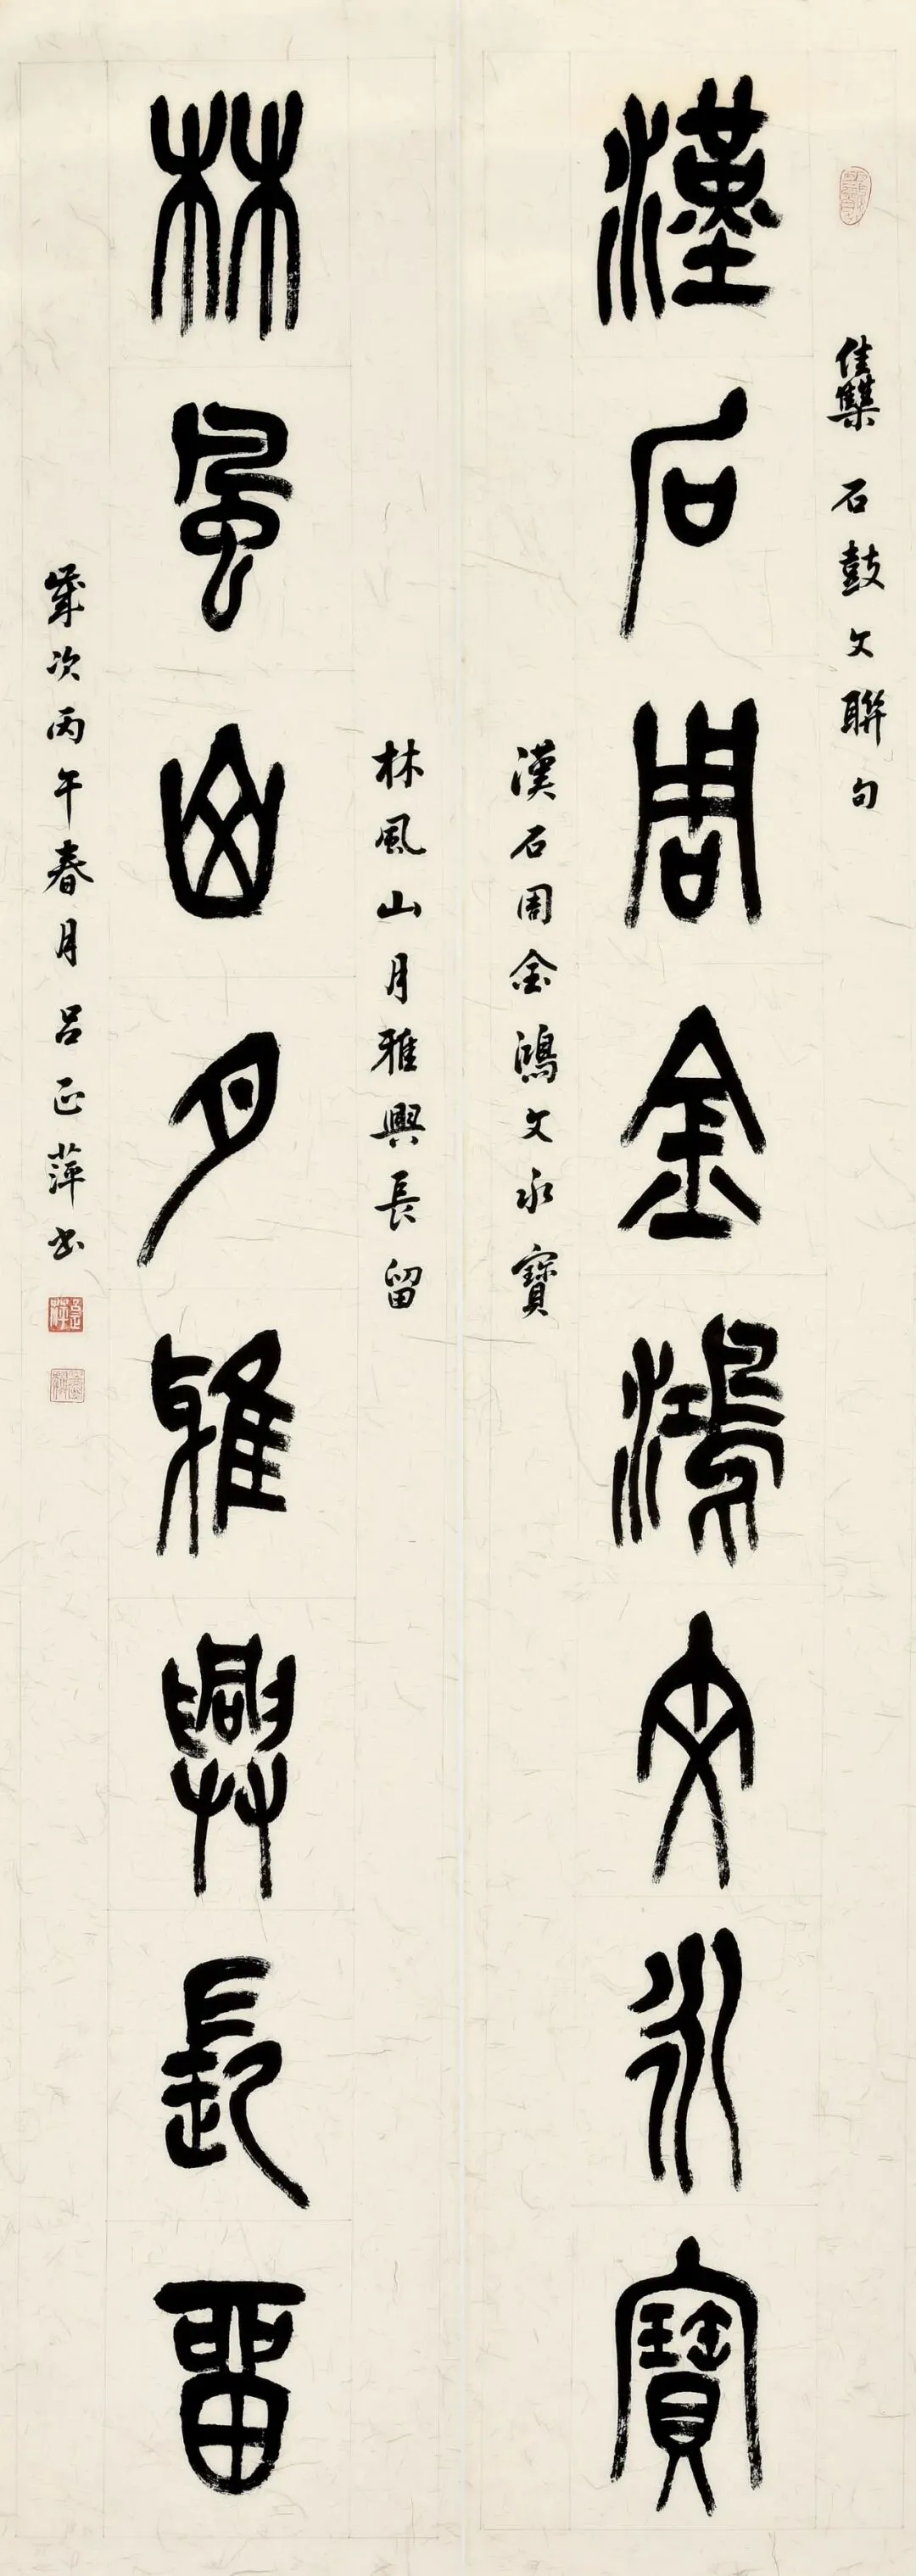 雧石鼓文聯句
漢石周金鴻文永寶
漢石周金鴻文永寶
林風山月雅興長留
林風山月雅興長留
歲次丙午春月呂正萍書